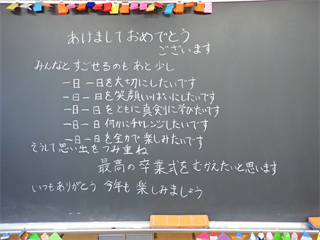 あけましておめでとう
ございます
みんなとすごせるのもあと少し
一日一日を大切にしたいです
一日一日を笑顔いっぱいにしたいです
一日一日をともに真剣に学びたいです
一日一日何かにチャレンジしたいです
一日一日を全力で楽しみたいです
そうして思い出をつみ重ね
最高の卒業式をむかえたいと思います
いつもありがとう 今年も楽しみましょう